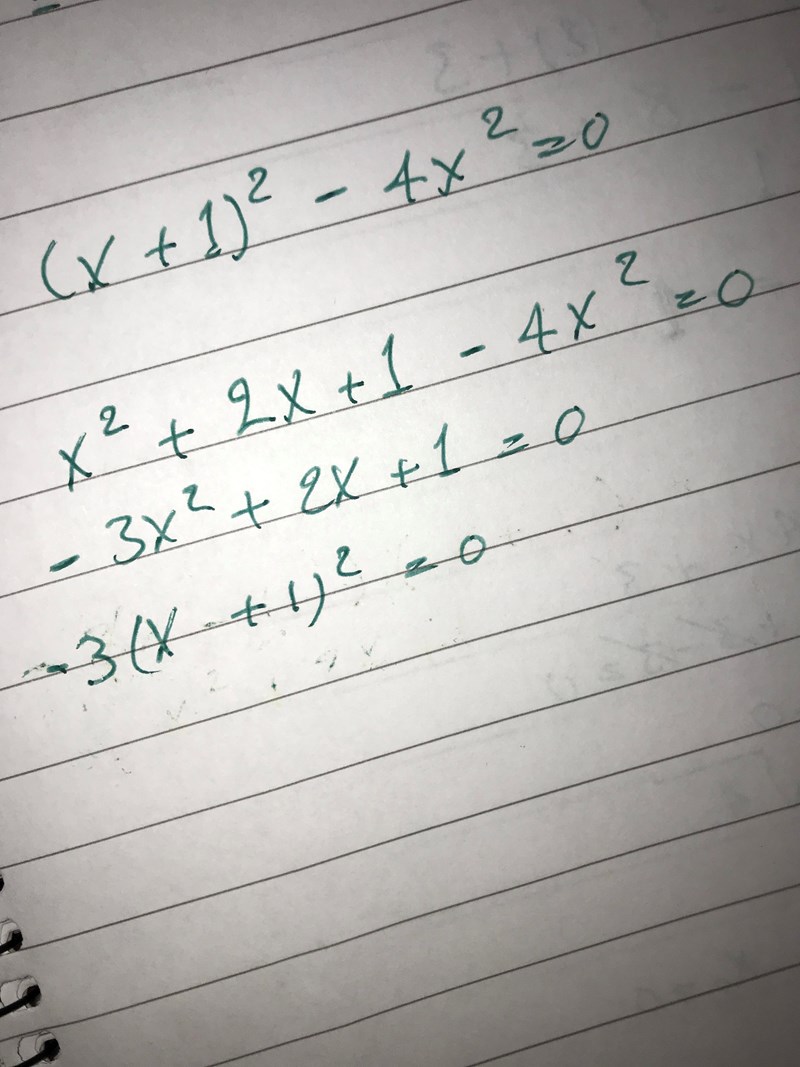 (x + 1)² - 4x² = 0
x² + 2x + 1 - 4x² = 0
- 3x² + 2x + 1 = 0
- 3(x + 1)² = 0